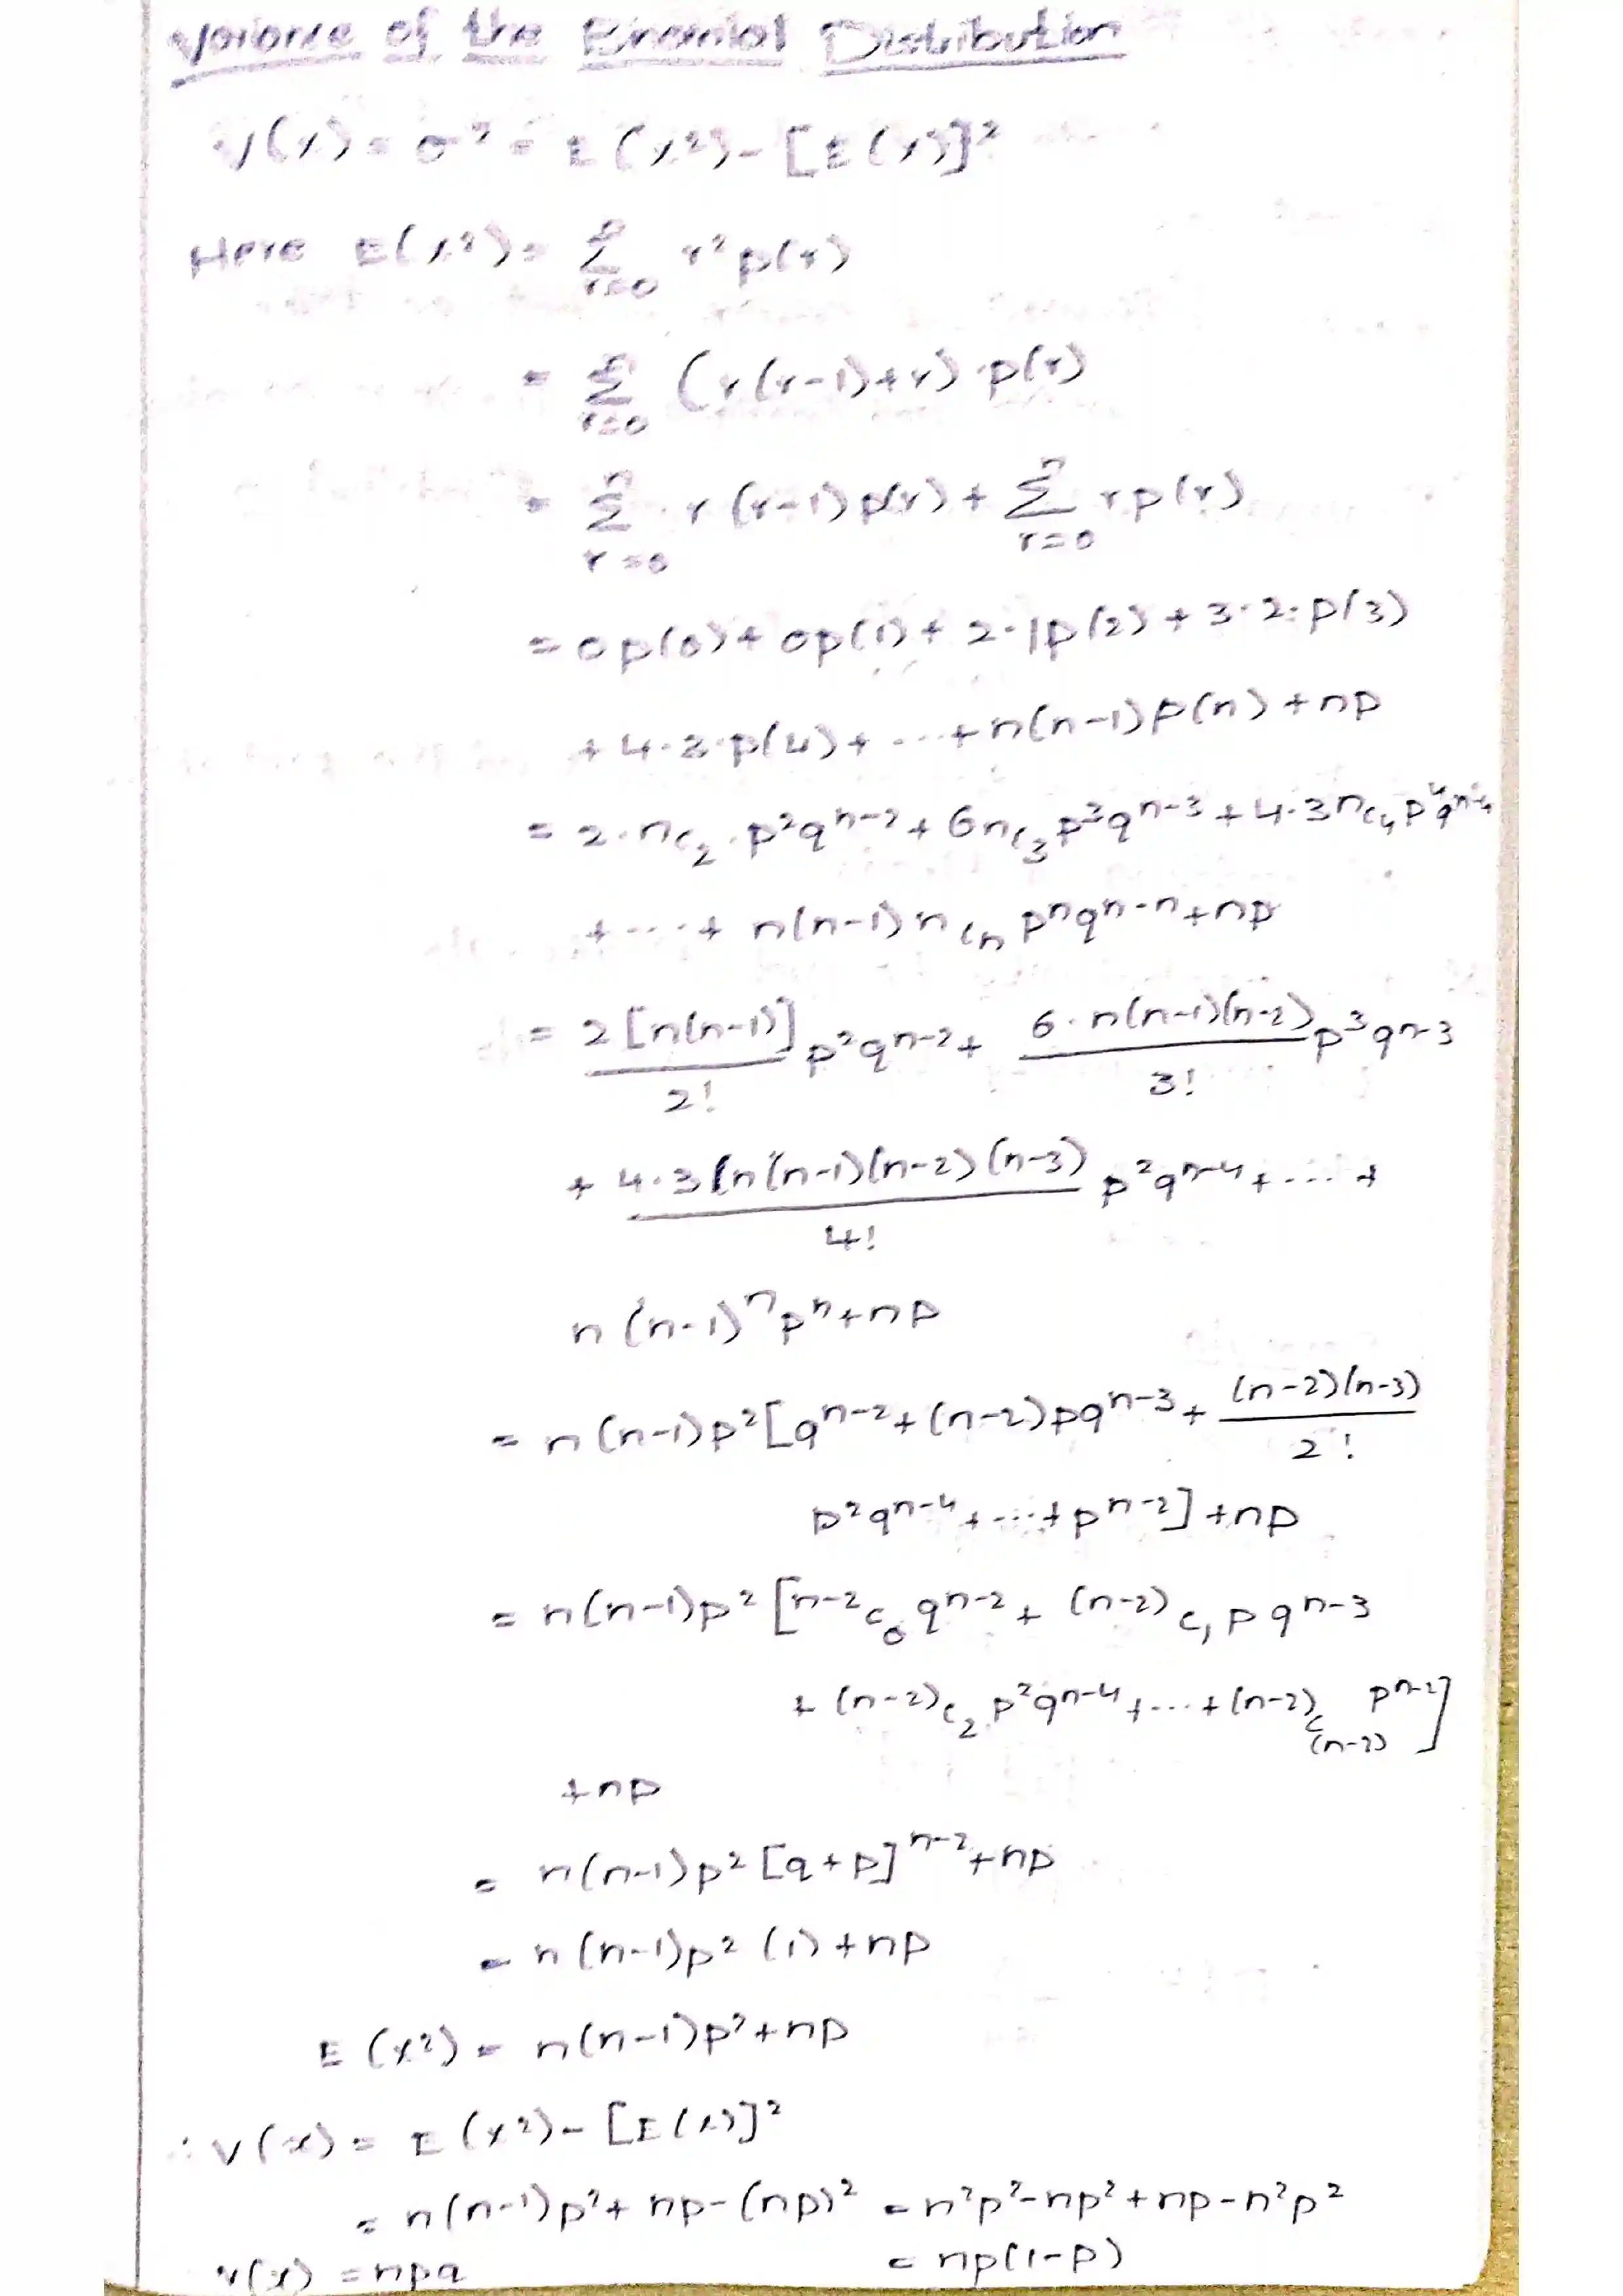 Variance of the Binomial Distribution
V(x) = σ² = E(x²) - [E(x)]²
Here E(x²) = Σ_{r=0}^{n} r² p(r)
= Σ_{r=0}^{n} (r(r-1)+r) · p(r)
= Σ_{r=0}^{n} r(r-1) p(r) + Σ_{r=0}^{n} r p(r)
= 0p(0) + 0p(1) + 2·1p(2) + 3·2·p(3)
+ 4·3·p(4) + ... + n(n-1)p(n) + np
= 2·n_{c_2}·p²q^{n-2} + 6n_{c_3} p³q^{n-3} + 4·3n_{c_4} p⁴q^{n-4}
+ ... + n(n-1) n_{c_n} pⁿq^{n-n} + np
= 2[n(n-1)]/2! p²q^{n-2} + 6·n(n-1)(n-2)/3! p³q^{n-3}
+ 4·3(n(n-1)(n-2)(n-3)/4! p²q^{n-4} + .... +
n(n-1)ⁿpⁿ + np
= n(n-1)p²[q^{n-2} + (n-2)pq^{n-3} + (n-2)(n-3)/2!
p²q^{n-4} + ... + p^{n-2}] + np
= n(n-1)p²[n-2_{c_0} q^{n-2} + (n-2)_{c_1} p q^{n-3}
+ (n-2)_{c_2} p²q^{n-4} + ... + (n-2)_{c_{(n-2)}} p^{n-2}]
+ np
= n(n-1)p²[q+p]^{n-2} + np
= n(n-1)p²(1) + np
E(x²) = n(n-1)p² + np
∴ V(x) = E(x²) - [E(x)]²
= n(n-1)p² + np - (np)² = n²p² - np² + np - n²p²
V(x) = npq = np(1-p)